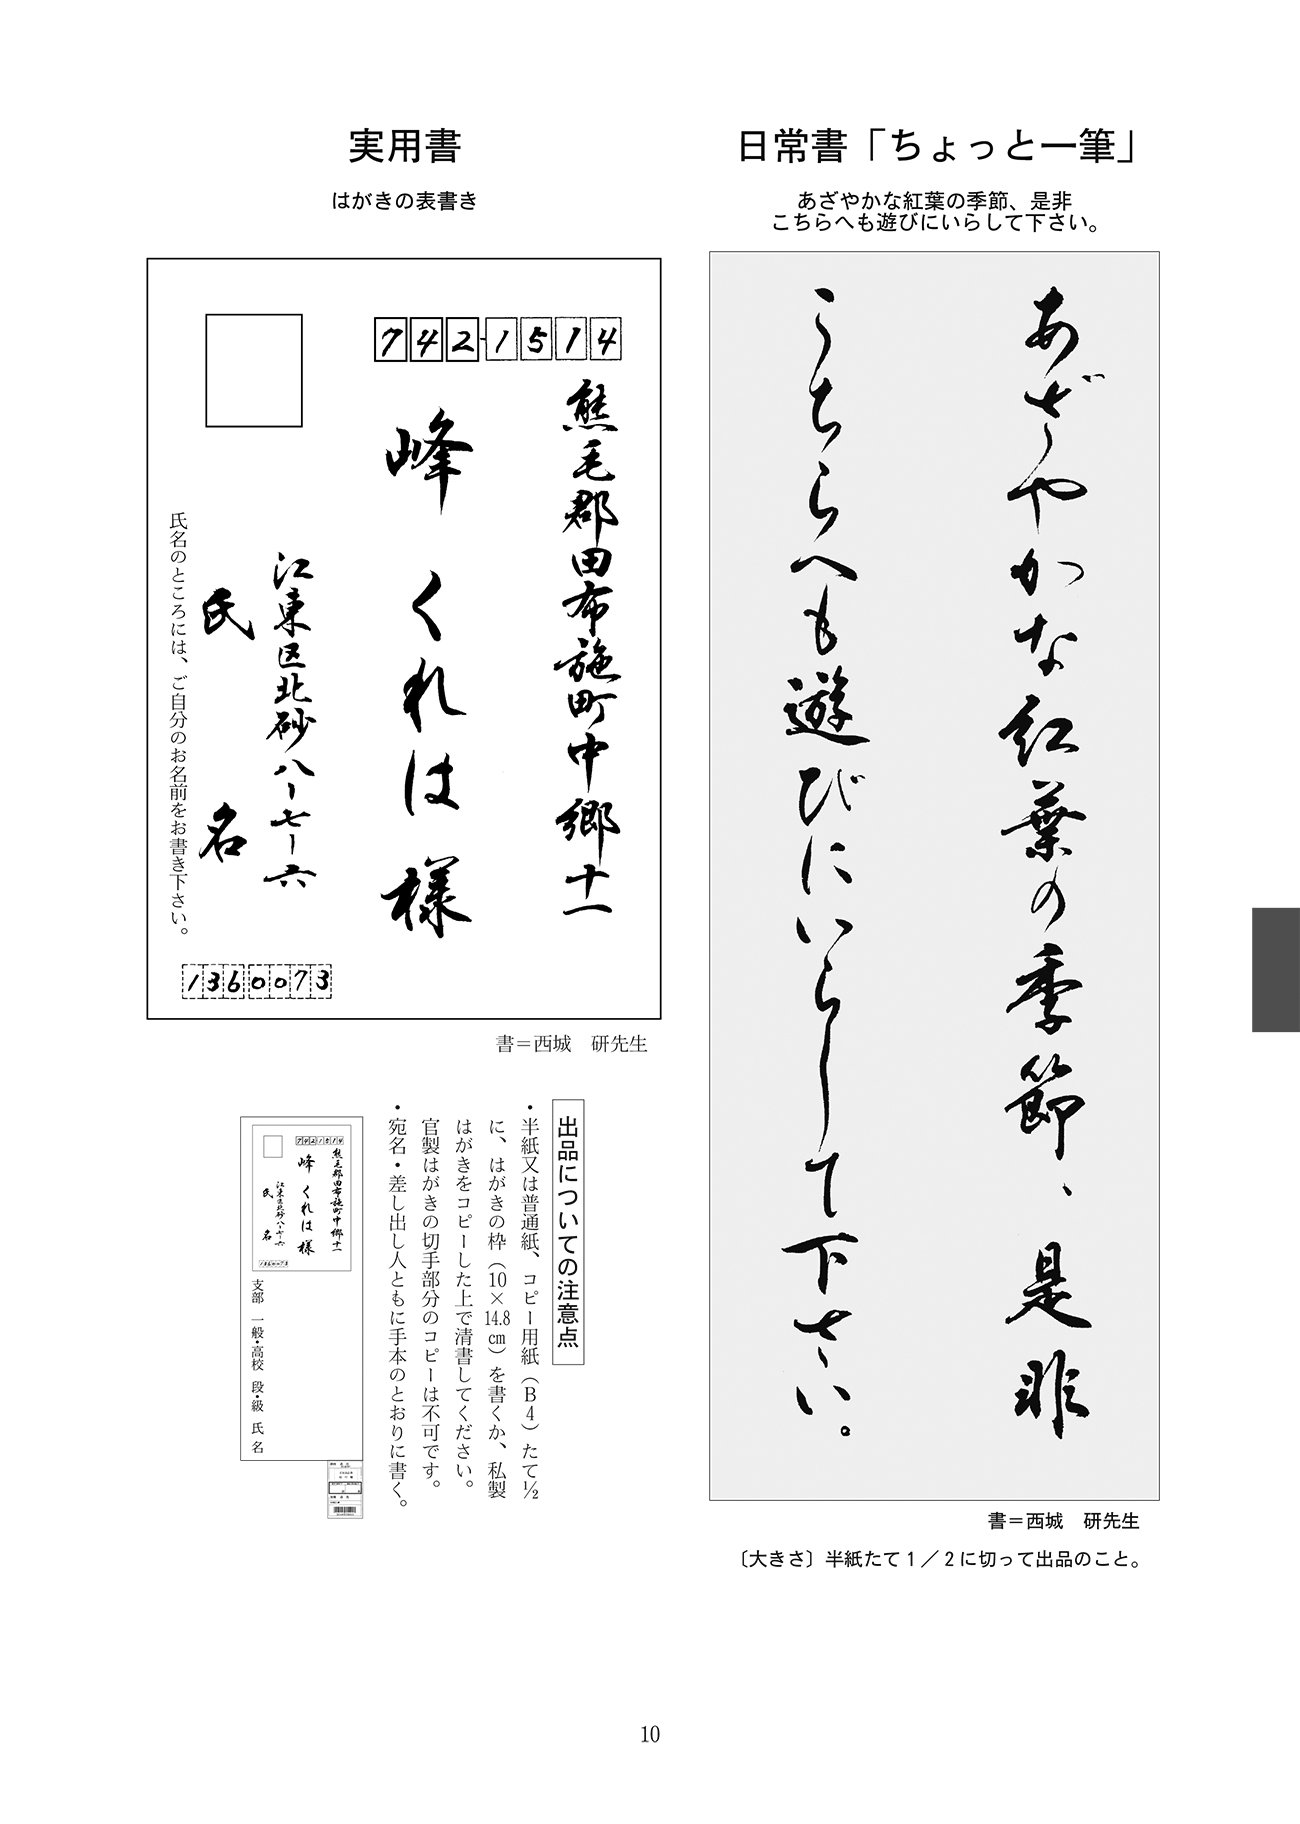 日常書「ちょっと一筆」
あざやかな紅葉の季節、是非
こちらへも遊びにいらして下さい。
あざやかな紅葉の季節、是非
こちらへも遊びにいらして下さい。
書＝西城　研先生
〔大きさ〕半紙たて１／２に切って出品のこと。
実用書
はがきの表書き
742-1514
熊毛郡田布施町中郷十一
峰くれは様
江東区北砂八ー七ー六
氏名
氏名のところには、ご自分のお名前をお書き下さい。
1360073
書＝西城　研先生
出品についての注意点
・半紙又は普通紙、コピー用紙（Ｂ４）たて½
に、はがきの枠（10×14.8㎝）を書くか、私製
はがきをコピーした上で清書してください。
官製はがきの切手部分のコピーは不可です。
・宛名・差し出し人ともに手本のとおりに書く。
7421514
熊毛郡田布施町中郷十一
峰くれは様
江東区北砂八ー七ー六
氏名
1360073
支部　一般・高校　段・級　氏名
10